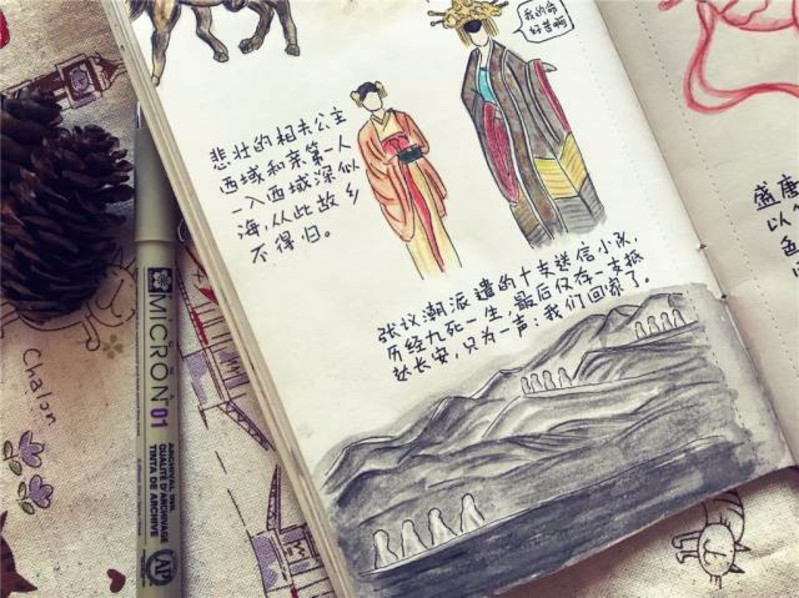 我的命
好苦啊
悲壮的相夫公主
西域和亲第一人
一入西域深似
海,从此故乡
不得归。
张议潮派遣的十支送信小队,
历经九死一生,最后仅存一支抵
达长安,只为一声:我们回家了。
盛唐
以
色
MICRON 01
ARCHIVAL INK
QUALITE D'ARCHIVAGE
TINTA DE ARCHIVE
AP
Chalon